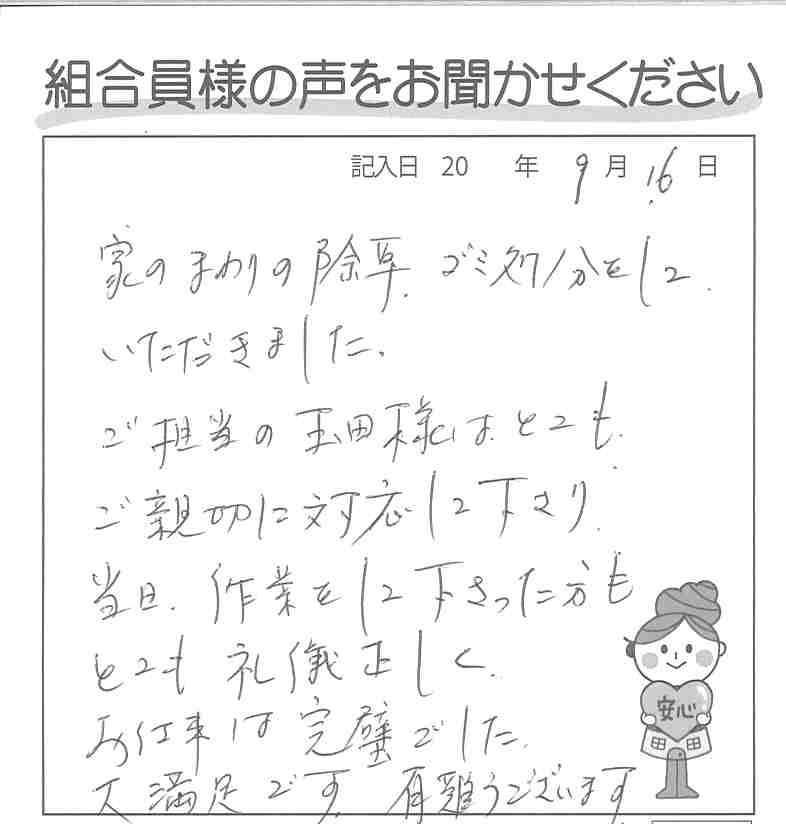 組合員様の声をお聞かせください
記入日 20 年 9月 16日
家のまわりの除草、ゴミ処分をして
いただきました。
ご担当の玉田様はとても
ご親切に対応して下さり、
当日、作業をして下さった方も
とても礼儀正しく、
お仕事は完璧でした。
大満足です。有難うございます
安心